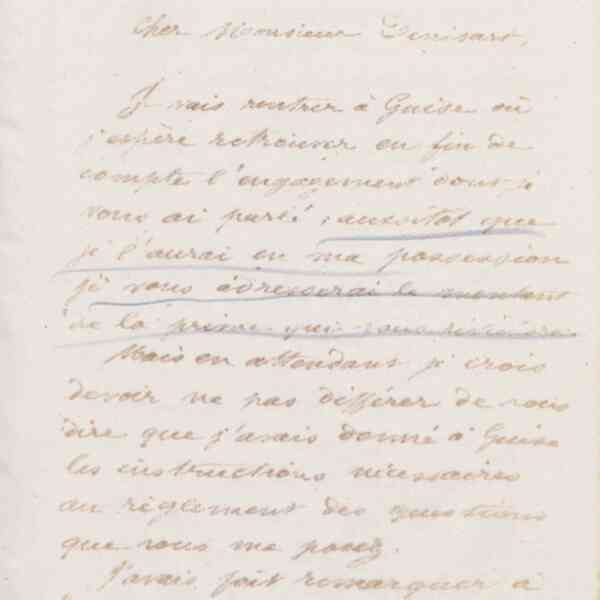 Cher Monsieur Denisart,
Je vais rentrer à Guise où
j'espère retrouver en fin de
compte l'engagement dont je
vous ai parlé, aussitôt que
je l'aurai en ma possession
je vous adresserai le montant
de la prime qui vous
Mais en attendant je crois
devoir ne pas différer de vous
dire que j'avais donné à Guise
les instructions nécessaires
au règlement des questions
que vous me posez.
J'avais fait remarquer à